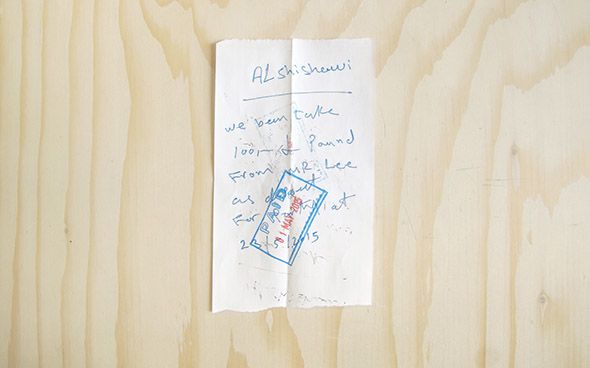 ALshishawi
we been take
100,- £ Pound
From MR. Lee
as
For at
22-5-2015
PAID
01 MAY 2015